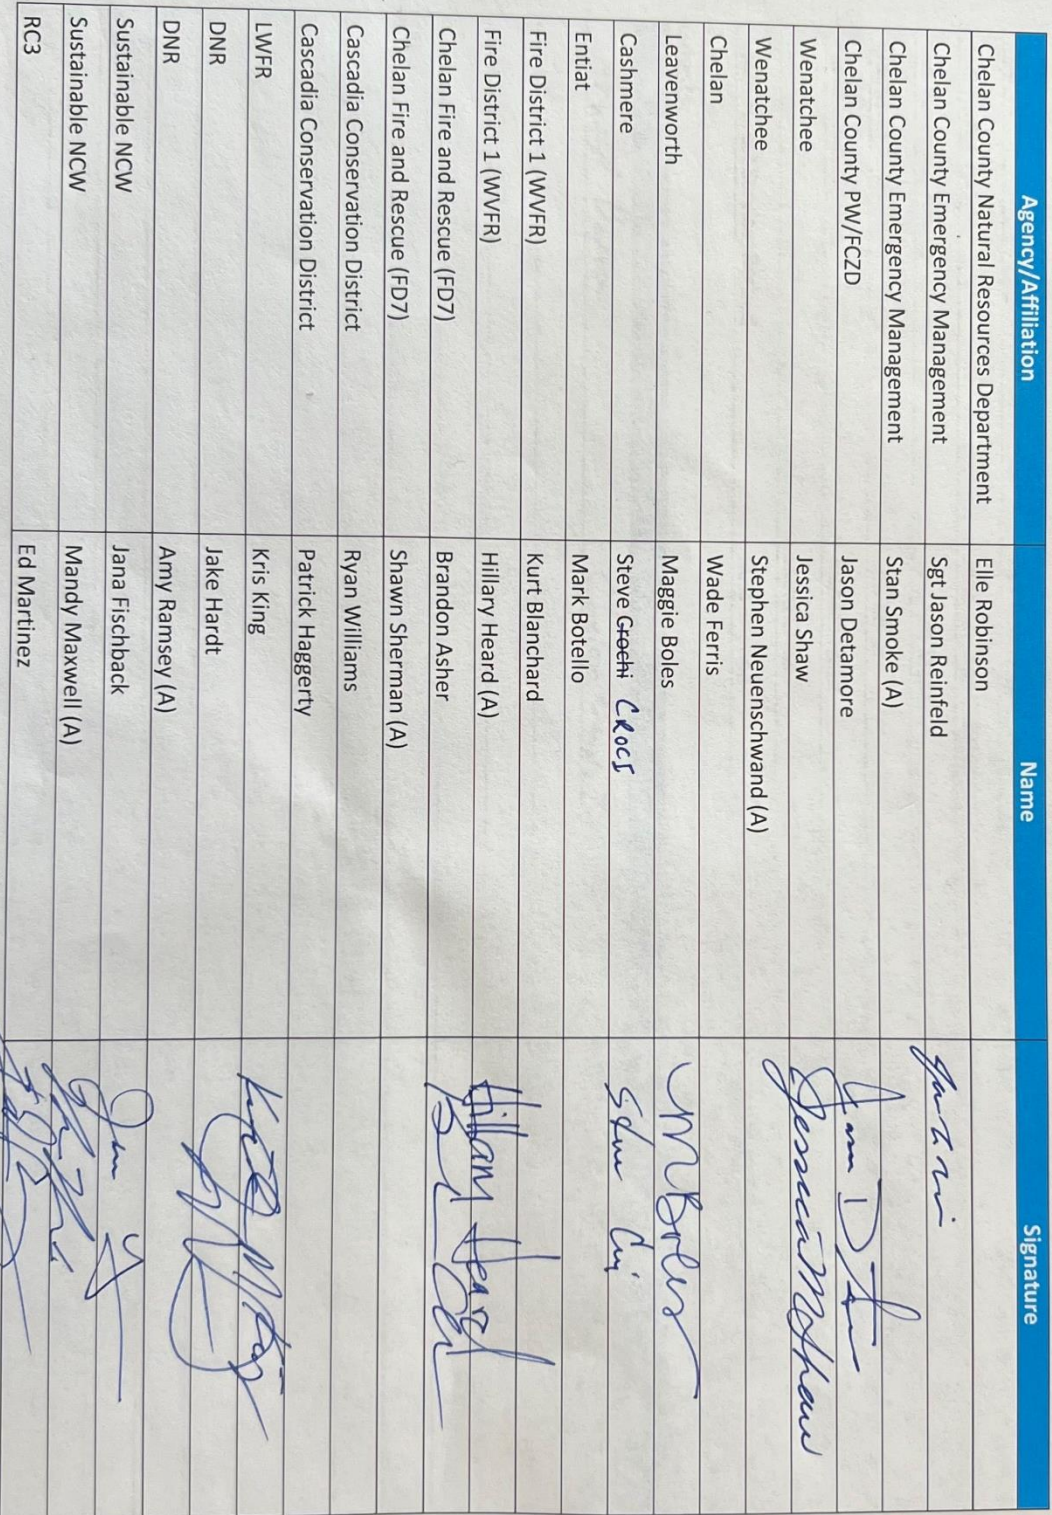 Agency/Affiliation Name Signature
Chelan County Natural Resources Department Elle Robinson
Chelan County Emergency Management Sgt Jason Reinfeld
Chelan County Emergency Management Stan Smoke (A)
Chelan County PW/FCZD Jason Detamore
Wenatchee Jessica Shaw Jessica M Shaw
Wenatchee Stephen Neuenschwand (A)
Chelan Wade Ferris
Leavenworth Maggie Boles MBoles
Cashmere Steve Crochi CROCI
Entiat Mark Botello
Fire District 1 (WVFR) Kurt Blanchard
Fire District 1 (WVFR) Hillary Heard (A) Hillary Heard
Chelan Fire and Rescue (FD7) Brandon Asher
Chelan Fire and Rescue (FD7) Shawn Sherman (A)
Cascadia Conservation District Ryan Williams
Cascadia Conservation District Patrick Haggerty
LWFR Kris King
DNR Jake Hardt
DNR Amy Ramsey (A)
Sustainable NCW Jana Fischback
Sustainable NCW Mandy Maxwell (A)
RC3 Ed Martinez